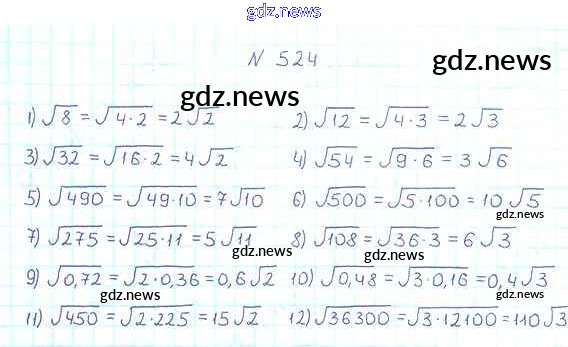 gdz.news
N 524
gdz.news
gdz.news
1) √8 = √4·2 = 2√2 2) √12 = √4·3 = 2√3
3) √32 = √16·2 = 4√2 4) √54 = √9·6 = 3√6
5) √490 = √49·10 = 7√10 6) √500 = √5·100 = 10√5
gdz.news
7) √275 = √25·11 = 5√11 8) √108 = √36·3 = 6√3
gdz.news
9) √0,72 = √2·0,36 = 0,6√2 10) √0,48 = √3·0,16 = 0,4√3
gdz.news
gdz.news
11) √450 = √2·225 = 15√2 12) √36300 = √3·12100 = 110√3